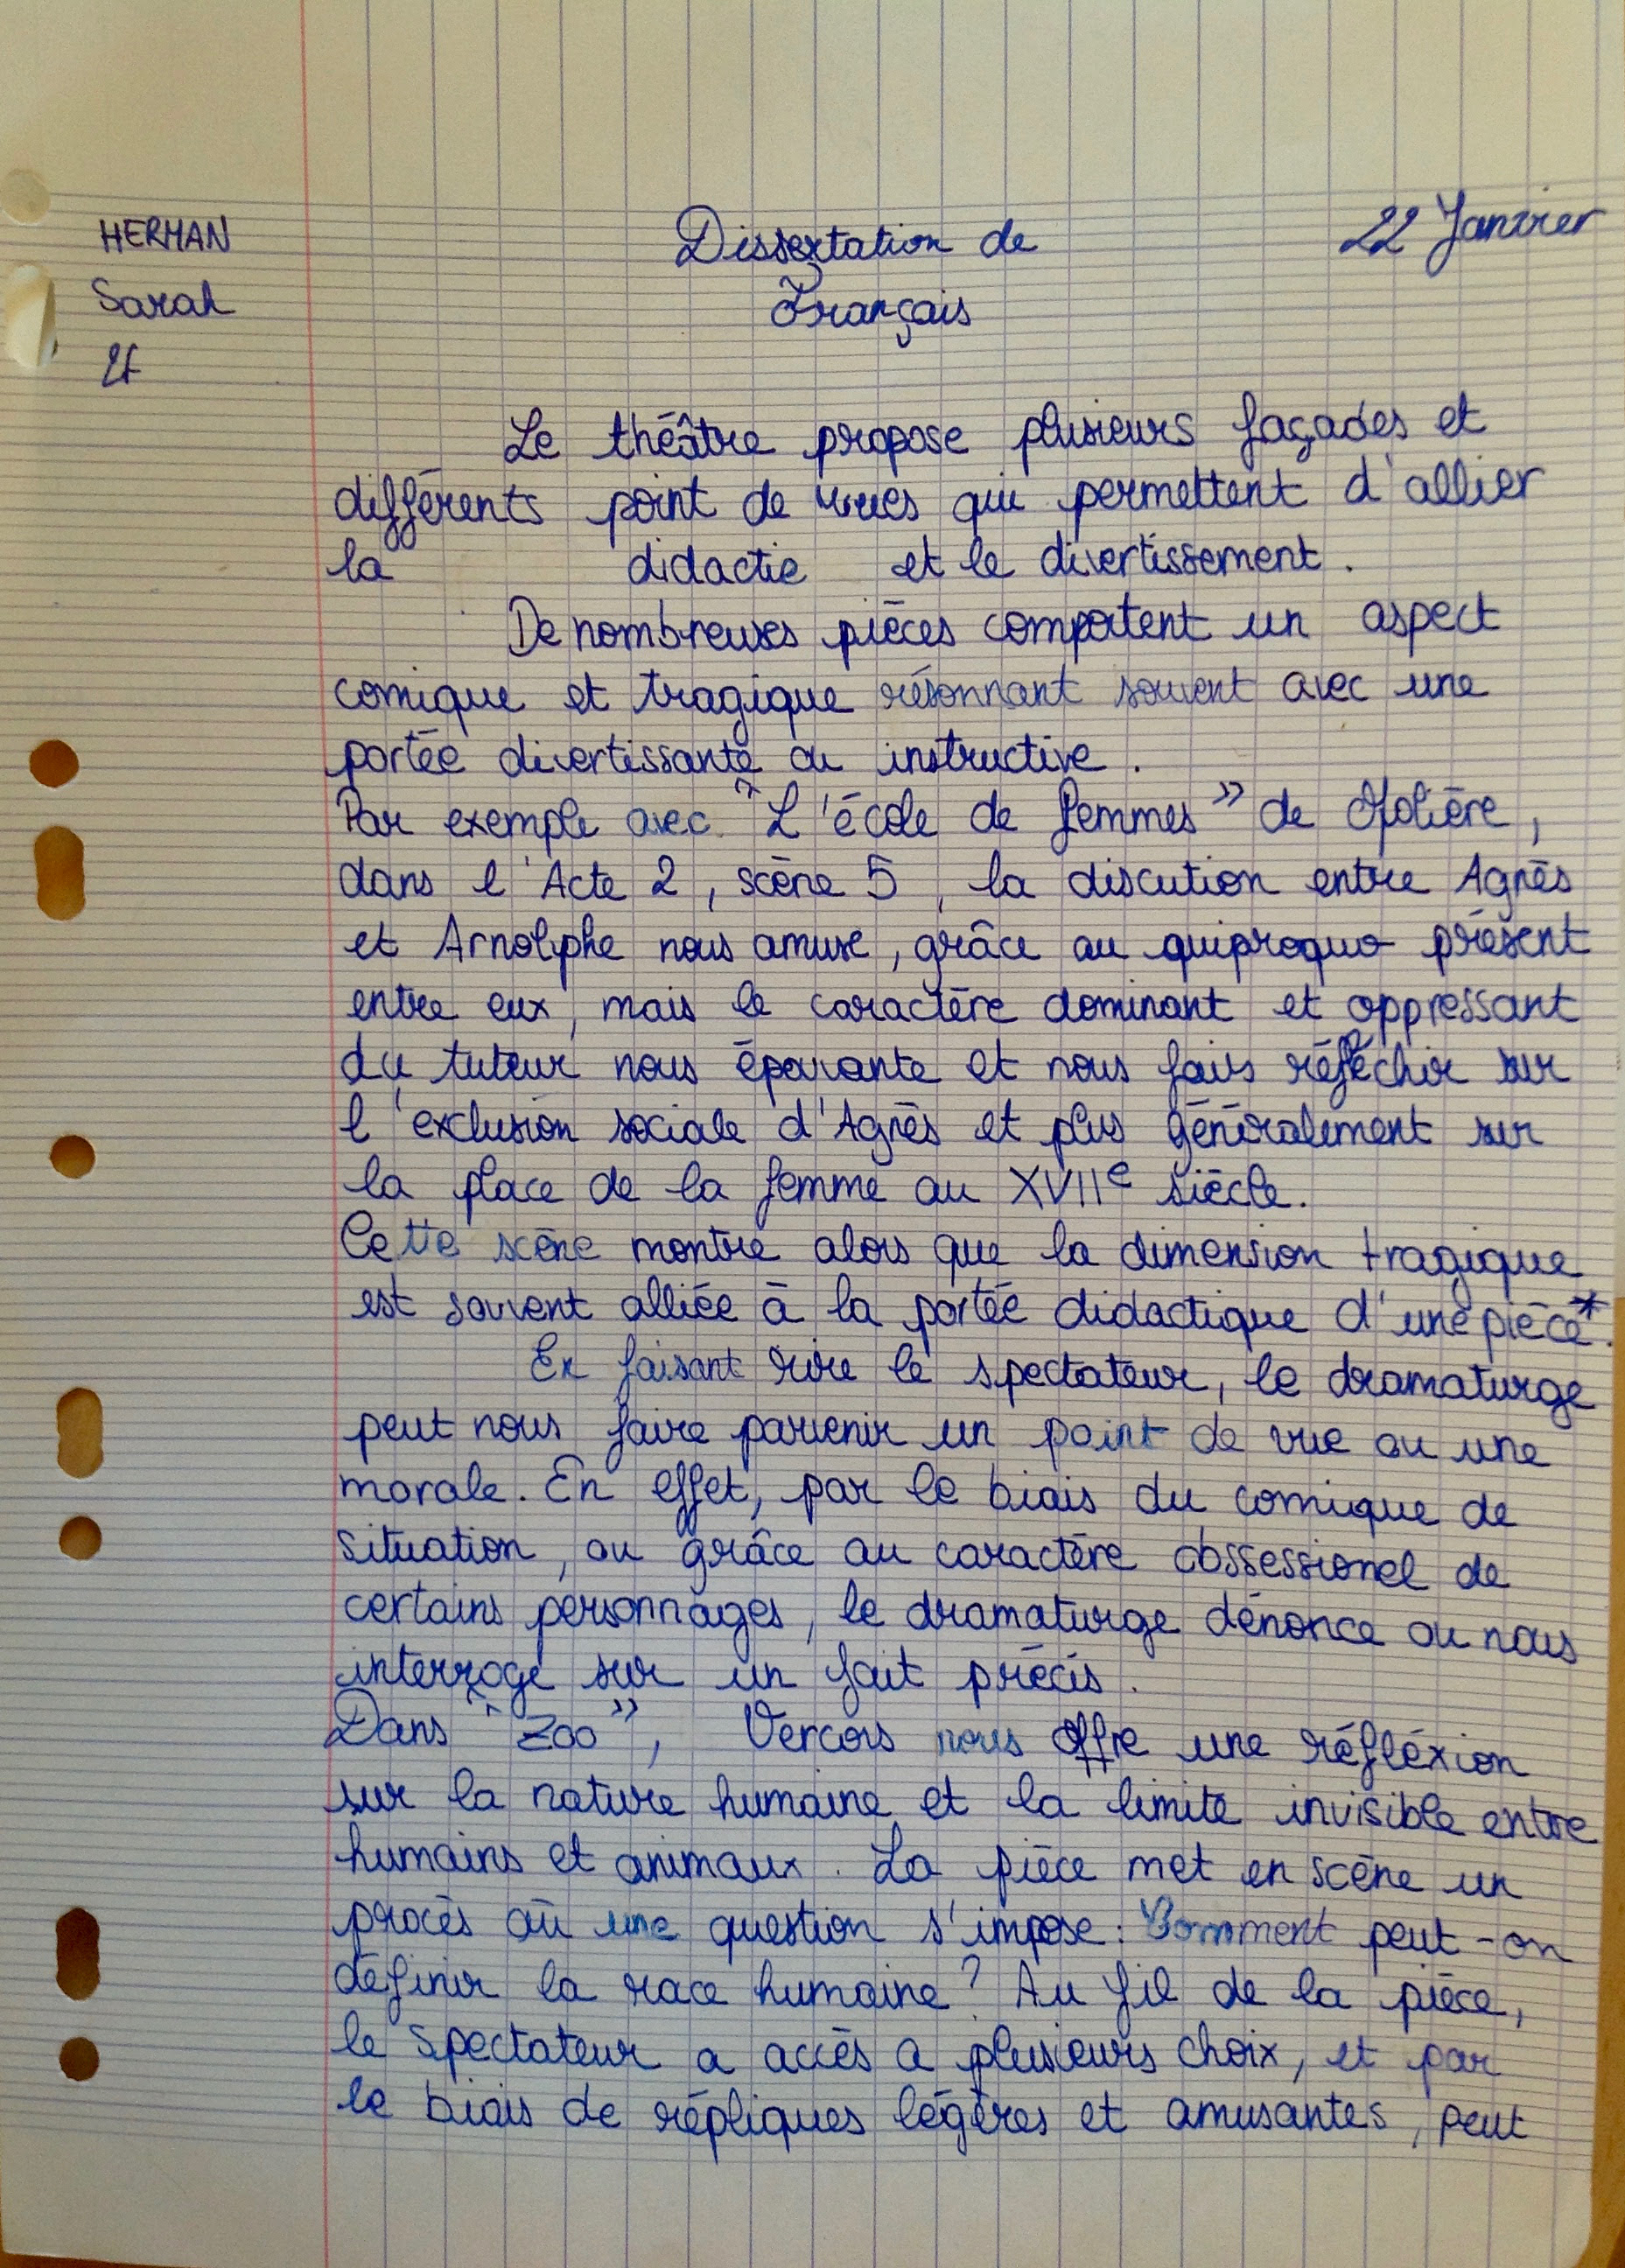 HERMAN
Dissertation de
22 Janvier
Sarah
Français
2f
Le théâtre propose plusieurs façades et
différents point de vues qui permettent d'allier
la didactie et le divertissement.
De nombreuses pièces comportent un aspect
comique et tragique résonnant souvent avec une
portée divertissante ou instructive.
Par exemple avec "L'école de femmes" de Molière,
dans l'Acte 2, scène 5, la discution entre Agnès
et Arnolphe nous amuse, grâce au quiproquo présent
entre eux, mais le caractère dominant et oppressant
du tuteur nous épavante et nous fais réfléchir sur
l'exclusion sociale d'Agnès et plus généralement sur
la place de la femme au XVIIe siècle.
Cette scène montre alors que la dimension tragique
est souvent alliée à la portée didactique d'une pièce*.
En faisant rire le spectateur, le dramaturge
peut nous faire parvenir un point de vue ou une
morale. En effet, par le biais du comique de
situation, ou grâce au caractère obssessionel de
certains personnages, le dramaturge dénonce ou nous
interroge sur un fait précis.
Dans "Zoo", Vercors nous offre une réfléxion
sur la nature humaine et la limite invisible entre
humains et animaux. La pièce met en scène un
procès où une question s'impose: Comment peut-on
définir la race humaine? Au fil de la pièce,
le spectateur a accès a plusieurs choix, et par
le biais de répliques légères et amusantes, peut